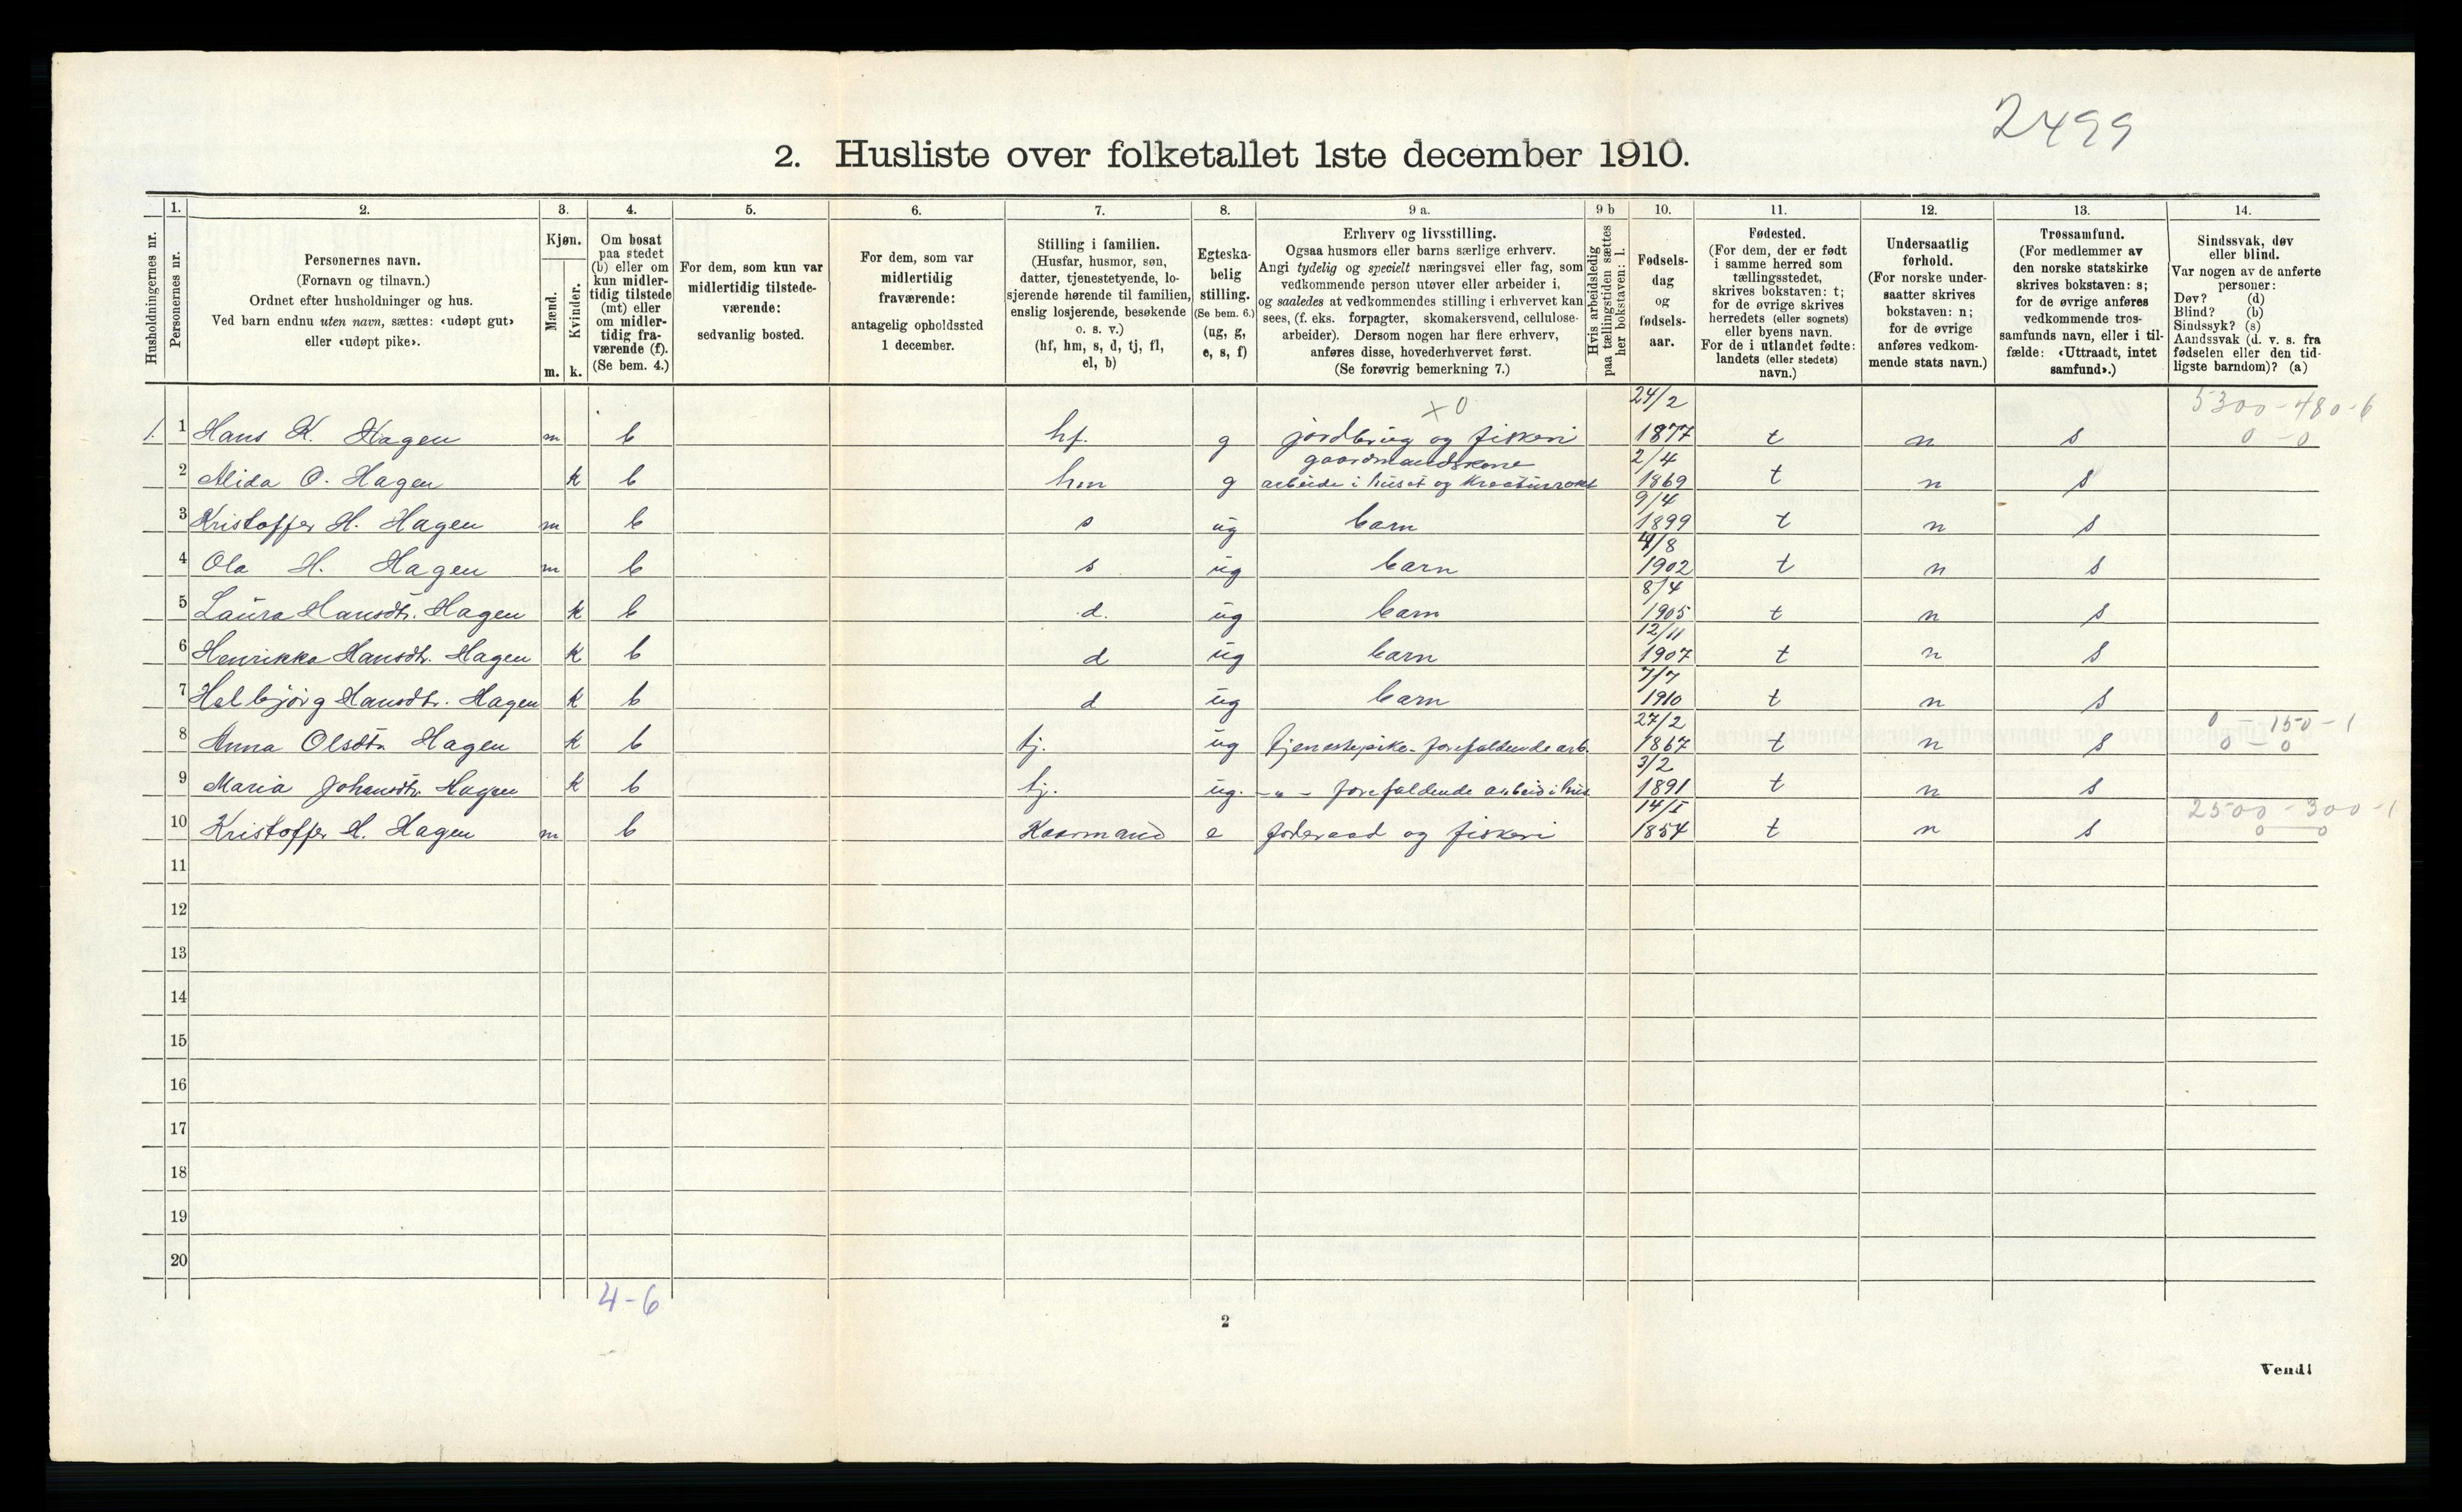 2499
2. Husliste over folketallet 1ste december 1910.
1. 2. 3. 4. 5. 6. 7. 8. 9 a. 9 b 10. 11. 12. 13. 14.
Husholdningernes nr.
Personernes nr.
Personernes navn.
(Fornavn og tilnavn.)
Ordnet efter husholdninger og hus.
Ved barn endnu uten navn, sættes: «udøpt gut»
eller «udøpt pike».
Kjøn.
Mænd.
Kvinder.
m. k.
Om bosat
paa stedet
(b) eller om
kun midler-
tidig tilstede
(mt) eller
om midler-
tidig fra-
værende (f).
(Se bem. 4.)
For dem, som kun var
midlertidig tilstede-
værende:
sedvanlig bosted.
For dem, som var
midlertidig
fraværende:
antagelig opholdssted
1 december.
Stilling i familien.
(Husfar, husmor, søn,
datter, tjenestetyende, lo-
sjerende hørende til familien,
enslig losjerende, besøkende
o. s. v.)
(hf, hm, s, d, tj, fl,
el, b)
Egteska-
belig
stilling.
(Se bem. 6.)
(ug, g,
e, s, f)
Erhverv og livsstilling.
Ogsaa husmors eller barns særlige erhverv.
Angi tydelig og specielt næringsvei eller fag, som
vedkommende person utøver eller arbeider i,
og saaledes at vedkommendes stilling i erhvervet kan
sees, (f. eks. forpagter, skomakersvend, cellulose-
arbeider). Dersom nogen har flere erhverv,
anføres disse, hovederhvervet først.
(Se forøvrig bemerkning 7.)
Hvis arbeidsledig
paa tællingstiden sættes
her bokstaven: l.
Fødsels-
dag
og
fødsels-
aar.
Fødested.
(For dem, der er født
i samme herred som
tællingsstedet,
skrives bokstaven: t;
for de øvrige skrives
herredets (eller sognets)
eller byens navn.
For de i utlandet fødte:
landets (eller stedets)
navn.)
Undersaatlig
forhold.
(For norske under-
saatter skrives
bokstaven: n;
for de øvrige
anføres vedkom-
mende stats navn.)
Trossamfund.
(For medlemmer av
den norske statskirke
skrives bokstaven: s;
for de øvrige anføres
vedkommende tros-
samfunds navn, eller i til-
fælde: «Uttraadt, intet
samfund».)
Sindssvak, døv
eller blind.
Var nogen av de anførte
personer:
Døv? (d)
Blind? (b)
Sindssyk? (s)
Aandssvak (d. v. s. fra
fødselen eller den tid-
ligste barndom)? (a)
x 0 24/2 5300-480-6
1. 1 Hans K. Hagen m b hf. g jordbrug og fiskeri 1877 t n s 0-0
gaardmandskone 2/4
2 Alida O. Hagen k b hm g arbeide i huset og Kreaturrökt 1869 t n s
9/4
3 Kristoffer H. Hagen m b s ug barn 1899 t n s
4/8
4 Ola H. Hagen m b s ug barn 1902 t n s
8/4
5 Laura Hansdtr. Hagen k b d. ug barn 1905 t n s
12/11
6 Henrikka Hansdtr. Hagen k b d ug barn 1907 t n s
7/7
7 Halbjörg Hansdtr. Hagen k b d ug barn 1910 t n s
27/2 0 - 150 - 1
8 Anna Olsdtr Hagen k b tj. ug tjenestepike. forefaldende arb. 1867 t n s 0 - 0
3/2
9 Maria Johansdtr Hagen k b tj. ug. -"- forefaldende arbeid i hus 1891 t n s
14/I 2500 - 300 - 1
10 Kristoffer H. Hagen m b Kaarmand e föderaad og fiskeri 1854 t n s 0 0
11
12
13
14
15
16
17
18
19
20
4-6
2
Vend!